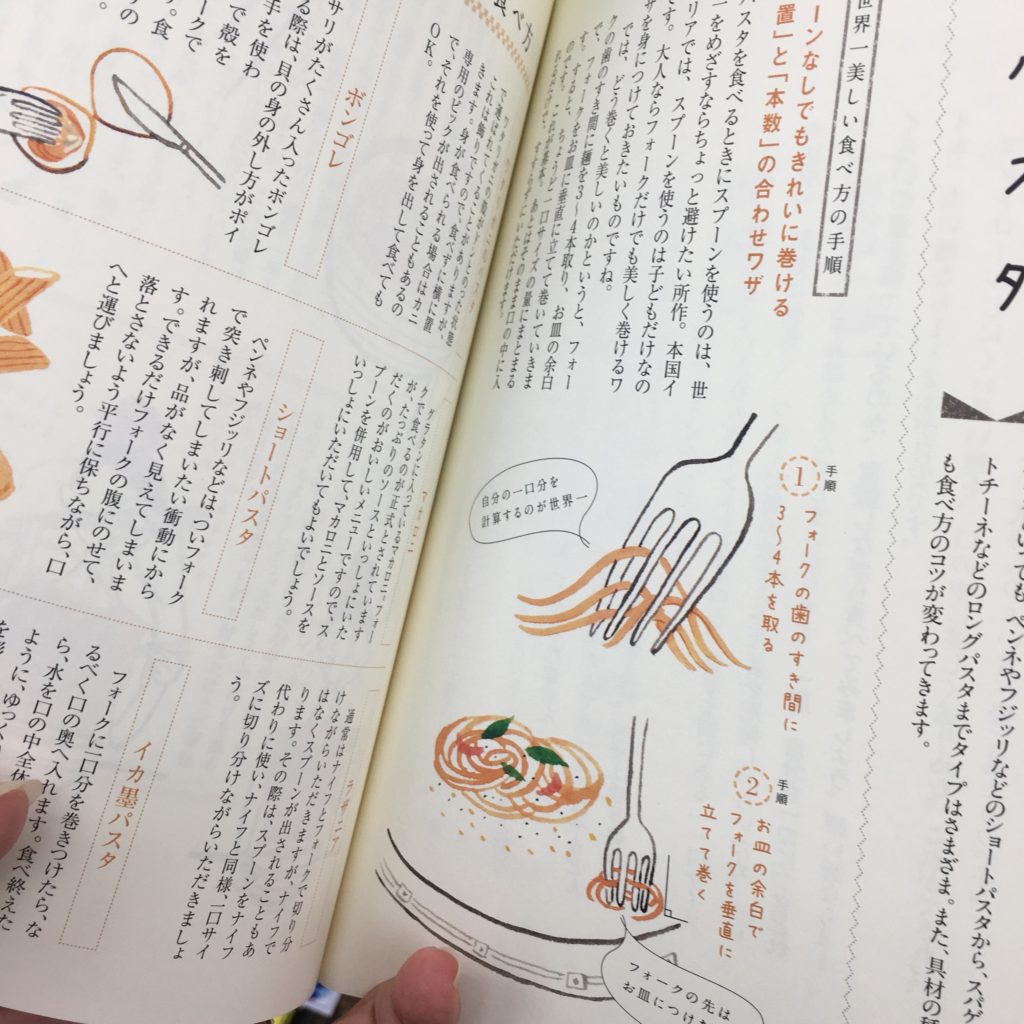 世界一美しい食べ方の手順
ーンなしでもきれいに巻ける
置」と「本数」の合わせワザ
パスタを食べるときにスプーンを使うのは、世
一をめざすならちょっと避けたい所作。本国イ
リアでは、スプーンを使うのは子どもだけなの
です。大人ならフォークだけでも美しく巻けるワ
ザを身につけておきたいものですね。
では、どう巻くと美しいのかというと、フォー
クの歯のすき間に麺を3〜4本取り、お皿の余白
で、フォークをお皿に垂直に立てて巻いていきま
す。すると、ちょうど一口サイズの量にまとまる
のです。これが基本。あとはそのまま口の中に入
いても、ペンネやフジッリなどのショートパスタから、スパゲ
トチーネなどのロングパスタまでタイプはさまざま。また、具材の種
も食べ方のコツが変わってきます。
手順
1
フォークの歯のすき間に
3〜4本を取る
自分の一口分を
計算するのが世界一
手順
2
お皿の余白で
フォークを垂直に
立てて巻く
フォークの先は
お皿につけた
食べ方
で運ばれてくることがありますが、
これは飾りですので、食べずに横に置
きます。身が食べられる場合はカニ
専用のピックが出されることもあるの
で、それを使って身を出して食べても
OK。
ボンゴレ
サリがたくさん入ったボンゴレ
る際は、貝の身の外し方がポイ
マカロニ
グラタンに入っているマカロニ。フォー
クで食べるのが正式とされています
が、たっぷりのソースといっしょにいた
だくのがおいしいメニューですので、ス
プーンを併用して、マカロニとソースを
いっしょにいただいてもよいでしょう。
ショートパスタ
ペンネやフジッリなどは、ついフォーク
で突き刺してしまいたい衝動にから
れますが、品がなく見えてしまいま
す。できるだけフォークの腹にのせて、
落とさないよう平行に保ちながら、口
へと運びましょう。
ラザニア
通常はナイフとフォークで切り分
けながらいただきますが、ナイフで
はなくスプーンが出されることもあ
ります。その際は、スプーンをナイフ
代わりに使い、ナイフと同様、一口サイ
ズに切り分けながらいただきましょ
う。
イカ墨パスタ
フォークに一口分を巻きつけたら、な
るべく口の奥へ入れます。食べ終えた
ら、水を口の中全体
ように、ゆっくり